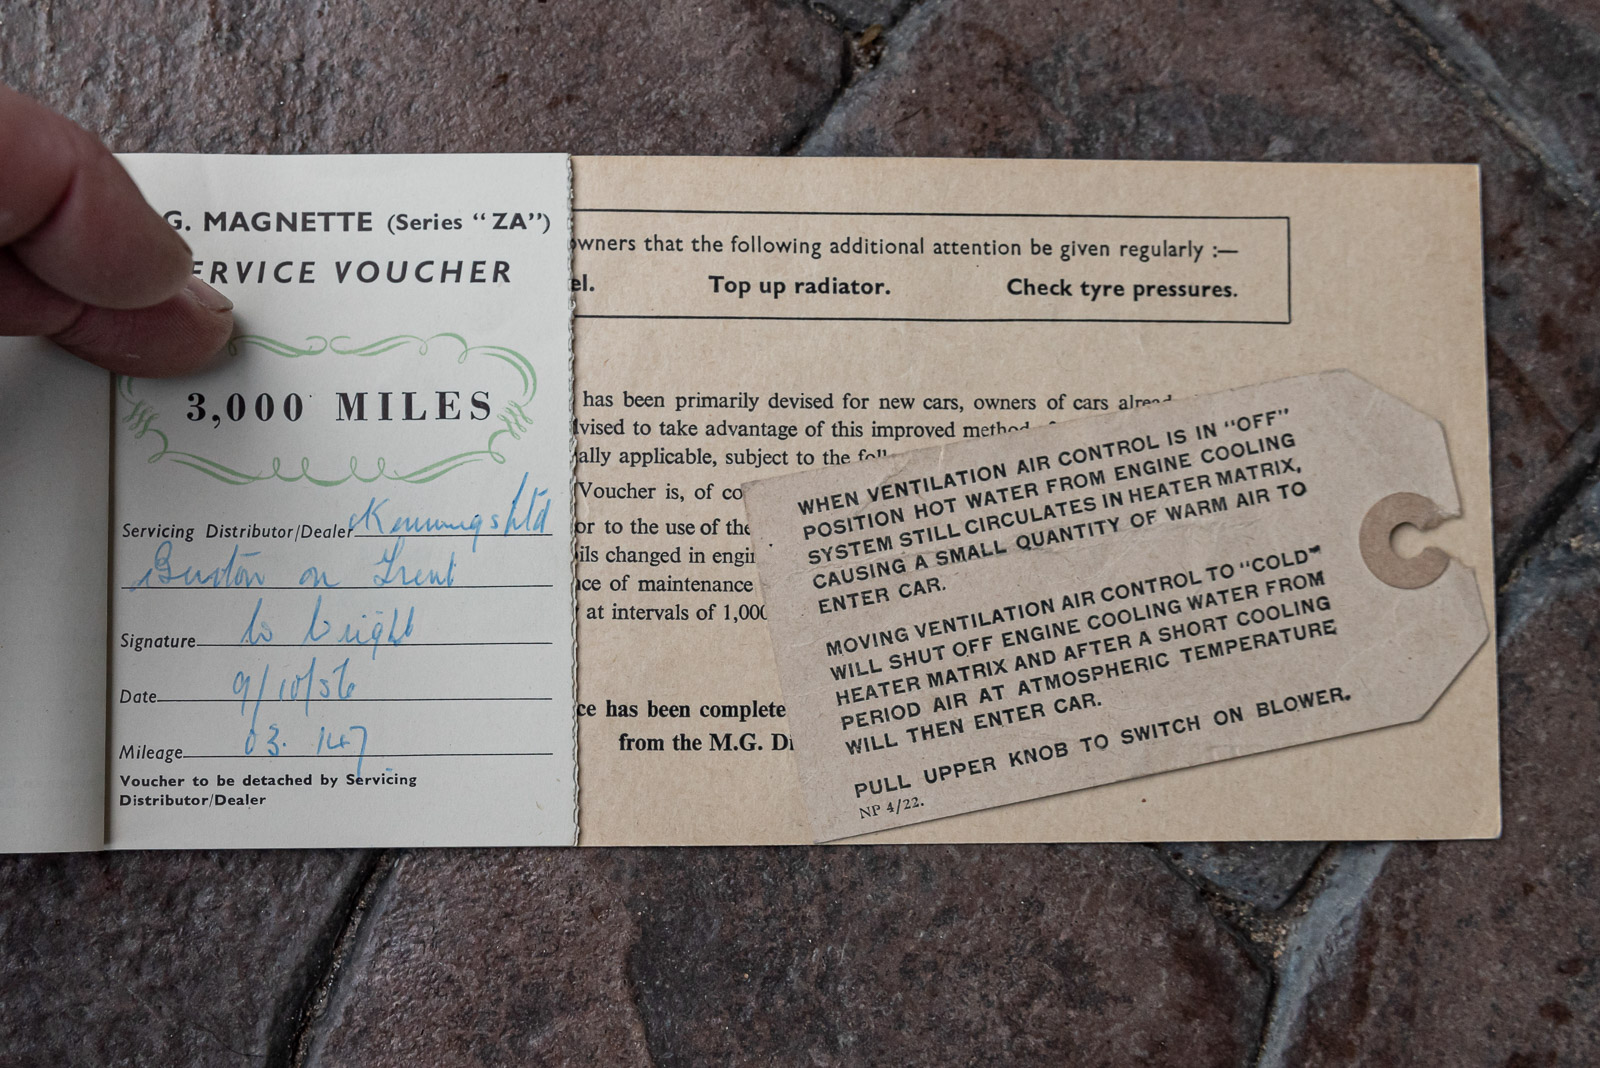 G. MAGNETTE (Series "ZA")
ERVICE VOUCHER
3,000 MILES
Servicing Distributor/Dealer Kennings Ltd
Burton on Trent
Signature W Wright
Date 9/10/56
Mileage 03.147
Voucher to be detached by Servicing
Distributor/Dealer
wners that the following additional attention be given regularly :—
el. Top up radiator. Check tyre pressures.
has been primarily devised for new cars, owners of cars
vised to take advantage of this improved
ally applicable, subject to the
Voucher is, of
or to the use of the
ils changed in
ce of maintenance
at intervals of
ce has been complete
from the M.G.
WHEN VENTILATION AIR CONTROL IS IN "OFF"
POSITION HOT WATER FROM ENGINE COOLING
SYSTEM STILL CIRCULATES IN HEATER MATRIX,
CAUSING A SMALL QUANTITY OF WARM AIR TO
ENTER CAR.
MOVING VENTILATION AIR CONTROL TO "COLD"
WILL SHUT OFF ENGINE COOLING WATER FROM
HEATER MATRIX AND AFTER A SHORT COOLING
PERIOD AIR AT ATMOSPHERIC TEMPERATURE
WILL THEN ENTER CAR.
PULL UPPER KNOB TO SWITCH ON BLOWER.
NP 4/22.